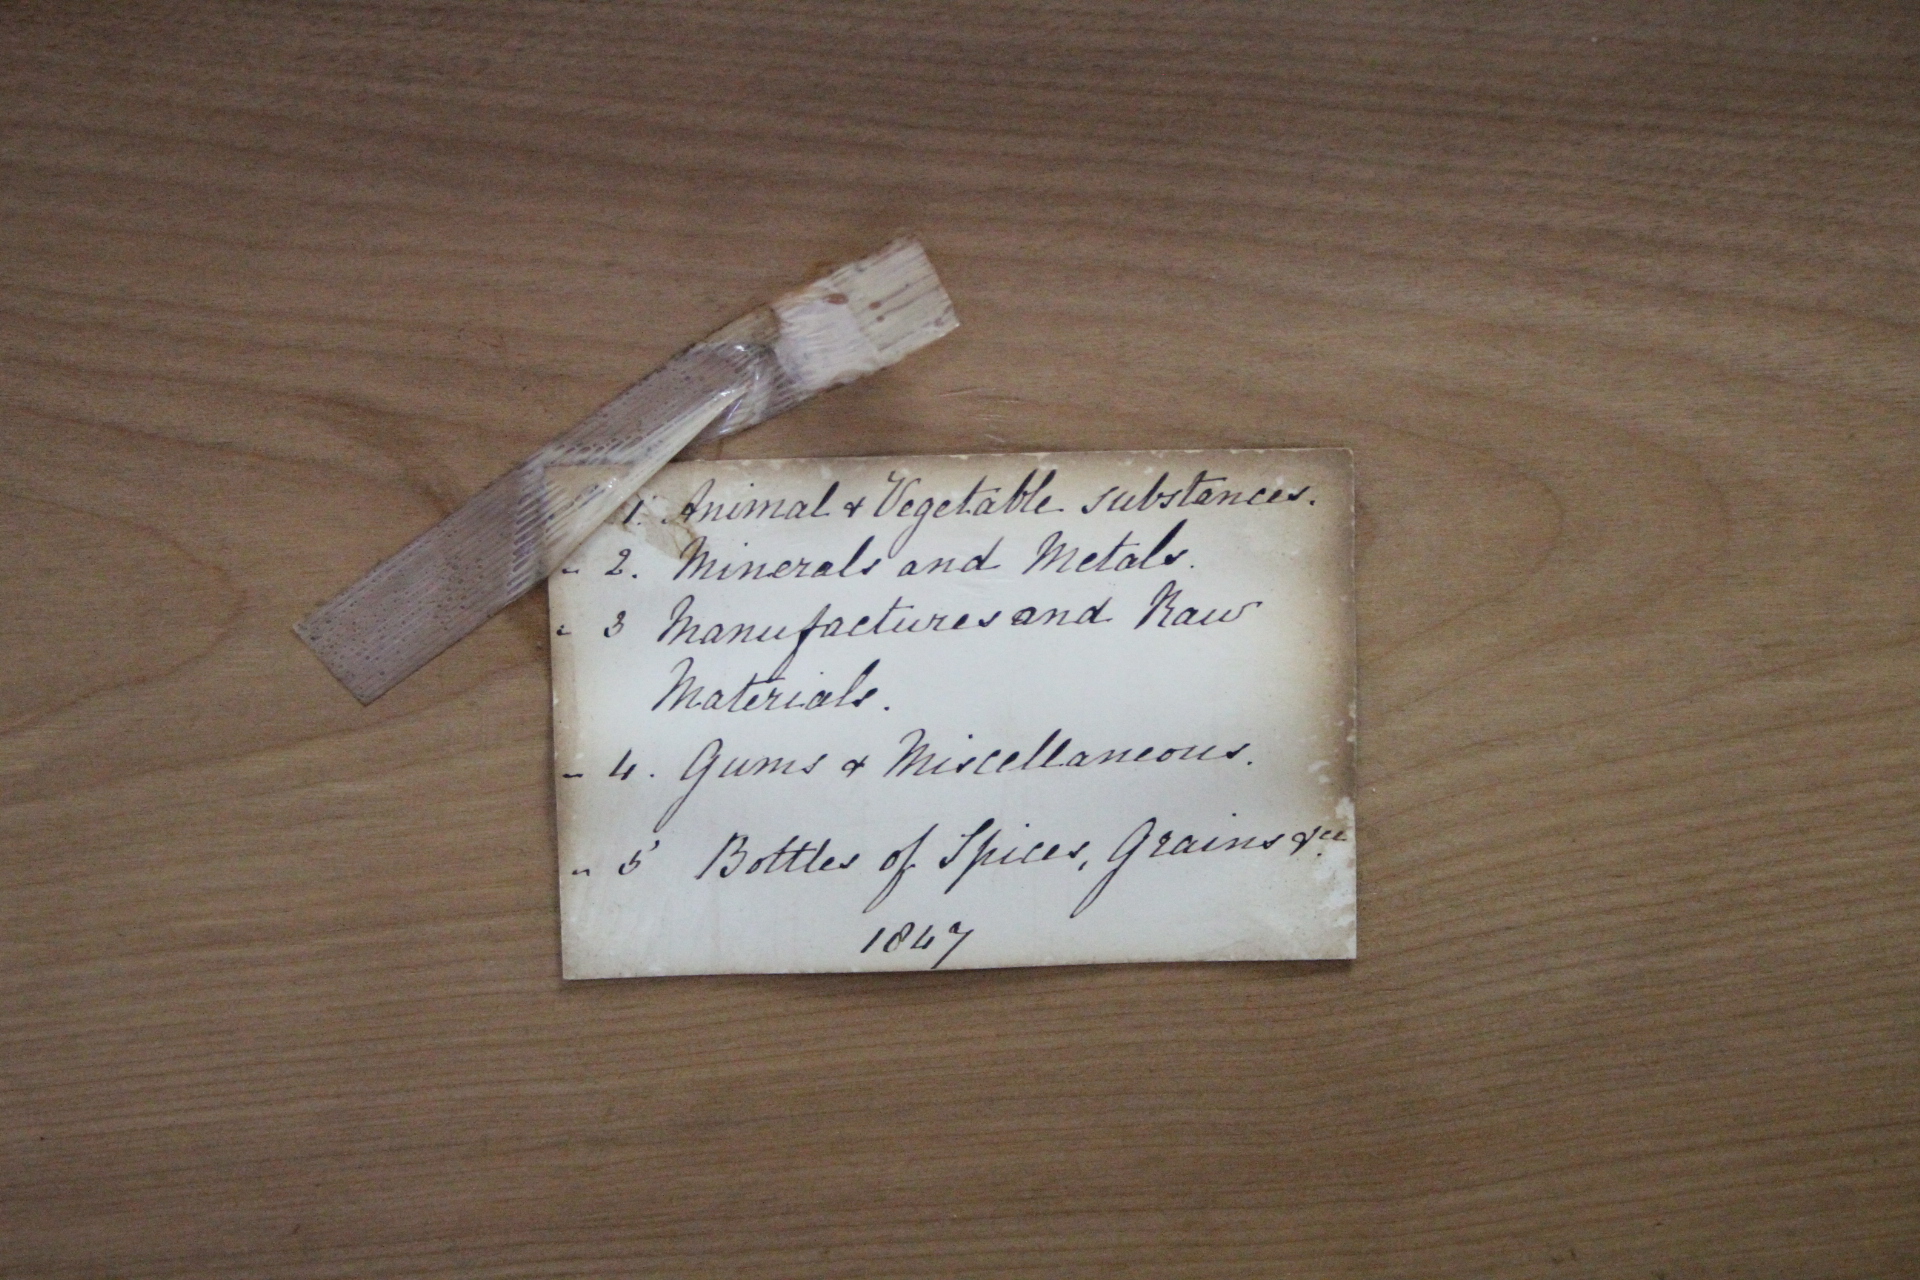 1. Animal & Vegetable substances.
" 2. Minerals and Metals.
" 3 Manufactures and Raw
Materials.
" 4. Gums & Miscellaneous.
" 5 Bottles of Spices, Grains &c
1847